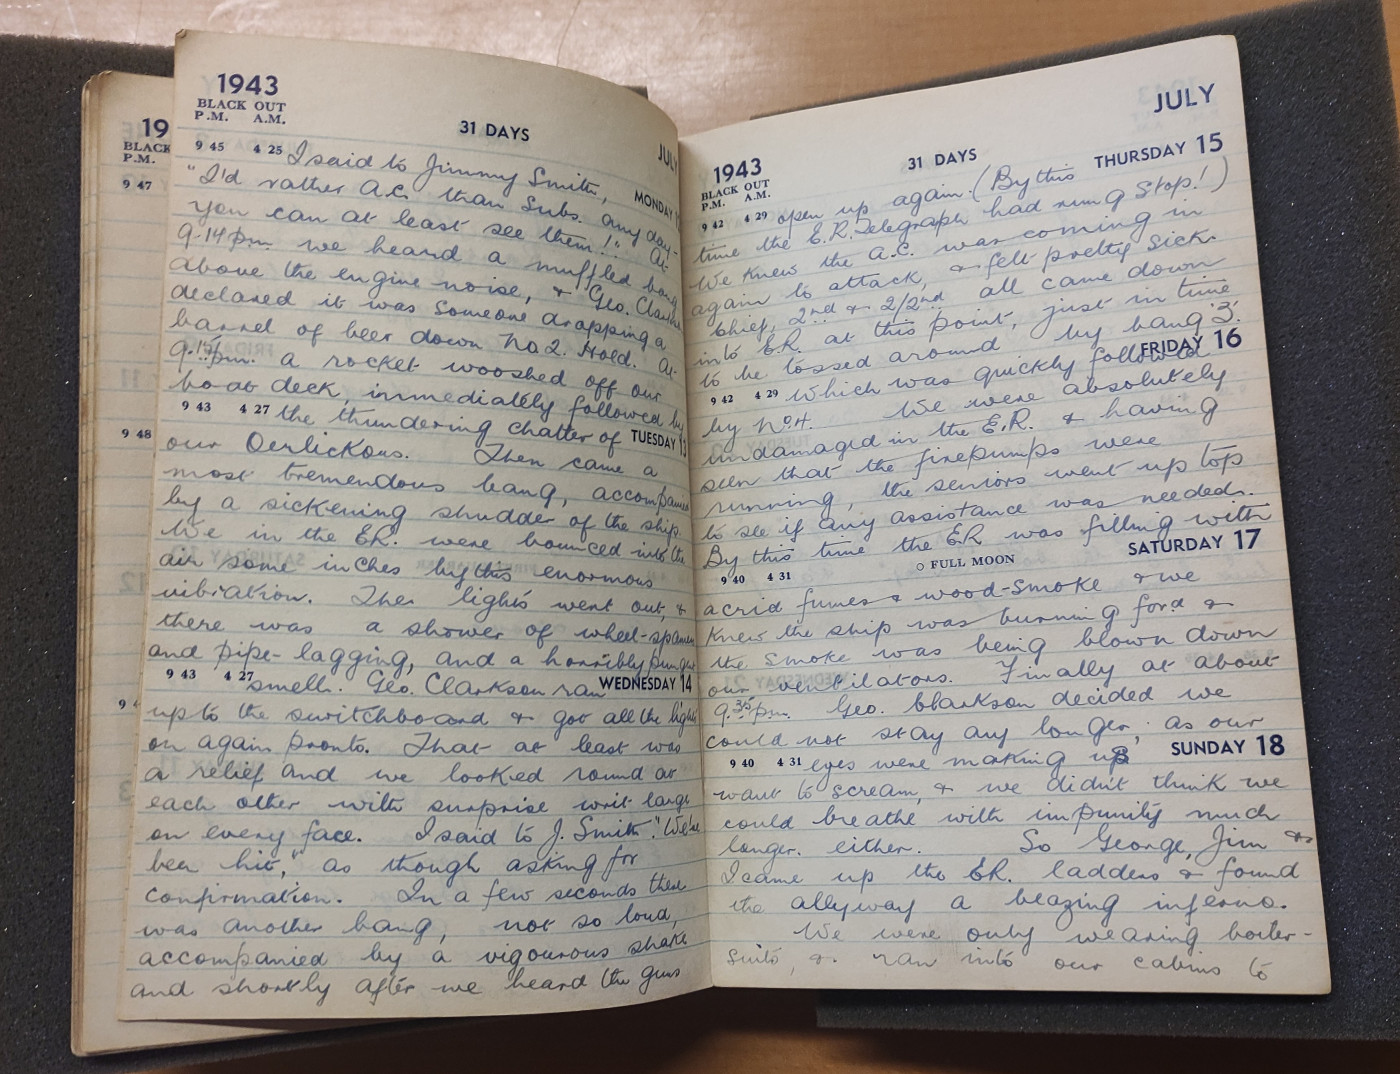 19
BLACK
P.M.
9 47
9 48
1943
BLACK OUT
P.M. A.M.
31 DAYS
JULY
9 45 4 25 I said to Jimmy Smith,
MONDAY
"I'd rather A.C. than Subs. any day-
you can at least see them!". At
9.14pm we heard a muffled bang
above the engine noise, & Geo. Clarkson
declared it was someone dropping a
barrel of beer down No 2. Hold. At
9.15pm. a rocket wooshed off our
boat deck, immediately followed by
9 43 4 27 the thundering chatter of TUESDAY 13
our Oerlickons. Then came a
most tremendous bang, accompanied
by a sickening shudder of the ship.
We in the ER. were bounced into the
air some inches by this enormous
vibration. The lights went out, &
there was a shower of wheel-spanners
and pipe-lagging, and a horribly pungent
9 43 4 27 smell. Geo. Clarkson ran WEDNESDAY 14
up to the switchboard & got all the lights
on again pronto. That at least was
a relief and we looked round at
each other with surprise writ large
on every face. I said to J. Smith "We've
been hit," as though asking for
confirmation. In a few seconds there
was another bang, not so loud,
accompanied by a vigourous shake
and shortly after we heard the guns
1943
BLACK OUT
P.M. A.M.
31 DAYS
JULY
THURSDAY 15
9 42 4 29 open up again (By this
time the E.R. Telegraph had rung Stop!)
We knew the A.C. was coming in
again to attack, & felt pretty sick.
Chief, 2nd & 2/2nd all came down
into E.R. at this point, just in time
to be tossed around by bang '3'.
FRIDAY 16
9 42 4 29 Which was quickly followed
by No4. We were absolutely
undamaged in the E.R. & having
seen that the firepumps were
running, the seniors went up top
to see if any assistance was needed.
By this time the ER was filling with
SATURDAY 17
9 40 4 31 ○ FULL MOON
acrid fumes & wood-smoke & we
knew the ship was burning ford &
the smoke was being blown down
our ventilators. Finally at about
9.35pm. Geo. Clarkson decided we
could not stay any longer, as our
SUNDAY 18
9 40 4 31 eyes were making us
want to scream, & we didn't think we
could breathe with impunity much
longer. either. So George, Jim &
I came up the ER. ladders & found
the allyway a blazing inferno.
We were only wearing boiler-
suits, & ran into our cabins to